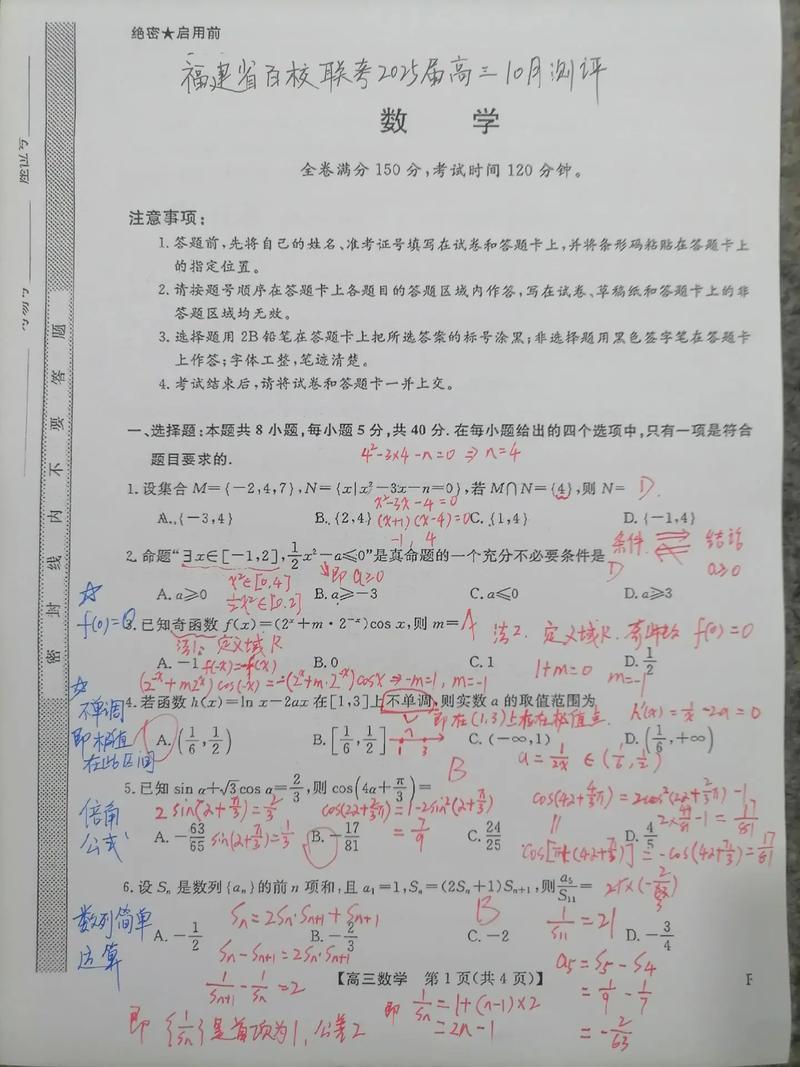 绝密★启用前
福建省百校联考2025届高三10月测评
数 学
全卷满分 150 分,考试时间 120 分钟。
注意事项:
1. 答题前,先将自己的姓名、准考证号填写在试卷和答题卡上,并将条形码粘贴在答题卡上
的指定位置。
2. 请按题号顺序在答题卡上各题目的答题区域内作答,写在试卷、草稿纸和答题卡上的非
答题区域均无效。
3. 选择题用 2B 铅笔在答题卡上把所选答案的标号涂黑;非选择题用黑色签字笔在答题卡
上作答;字体工整,笔迹清楚。
4. 考试结束后,请将试卷和答题卡一并上交。
密 封 线 内 不 要 答 题
一、选择题:本题共 8 小题,每小题 5 分,共 40 分. 在每小题给出的四个选项中,只有一项是符合
题目要求的.
4²-3×4-n=0 ⇒ n=4
1. 设集合 M={-2,4,7},N={x|x²-3x-n=0},若 M∩N={4},则 N= D.
x²-3x-4=0
A. {-3,4} B. {2,4} (x+1)(x-4)=0 C. {1,4} D. {-1,4}
-1, 4
2. 命题“∃x∈[-1,2],½x²-a≤0”是真命题的一个充分不必要条件是 D
条件 ⇌ 结论
a≥0
x²∈[0,4] 即 a≥0
½x²∈[0,2]
A. a≥0 B. a≥-3 C. a≤0 D. a≥3
☆
f(0)=0
3. 已知奇函数 f(x)=(2ˣ+m·2⁻ˣ)cos x,则 m= A
法2. 定义域R. 奇函数 f(0)=0
法1: 定义域R
A. -1 B. 0 C. 1 D. 1/2
f(-x)=-f(x)
1+m=0 m=-1
(2⁻ˣ+m2ˣ)cos(-x)=-(2ˣ+m·2⁻ˣ)cosx ⇒ -m=1, m=-1
☆
不单调
即极值
在此区间
4. 若函数 h(x)=ln x-2ax 在[1,3]上不单调,则实数 a 的取值范围为
即在(1,3)上存在极值点. h'(x)=1/x-2a=0
A. (1/6,1/2) B. [1/6,1/2] C. (-∞,1) D. (1/6,+∞)
1 3
a=1/2x ∈(1/6,1/2)
5. 已知 sin α+√3cos α=2/3,则 cos(4α+π/3)= B
倍角
公式
2sin(α+π/3)=2/3
sin(α+π/3)=1/3
cos(2α+2π/3)=1-2sin²(α+π/3)
=7/9
cos(4α+4/3π)=2cos²(2α+2/3π)-1
2×49/81-1=17/81
cos[π+(4α+π/3)]=-cos(4α+π/3)=17/81
A. -63/65 B. -17/81 C. 24/25 D. 4/5
6. 设 Sₙ 是数列{aₙ}的前 n 项和,且 a₁=1,Sₙ=(2Sₙ+1)Sₙ₊₁,则 a₅/S₁₁= 21×(-2/63)
B
数列简单
运算
Sₙ=2Sₙ·Sₙ₊₁+Sₙ₊₁
1/S₁₁=21
A. -1/2 B. -2/3 C. -2 D. -3/4
Sₙ-Sₙ₊₁=2Sₙ·Sₙ₊₁
a5=S5-S4
=1/9-1/7
=-2/63
【高三数学 第 1 页(共 4 页)】
F
1/Sₙ₊₁-1/Sₙ=2
即 1/Sₙ=1+(n-1)×2
=2n-1
即 {1/Sₙ}是首项为1, 公差2